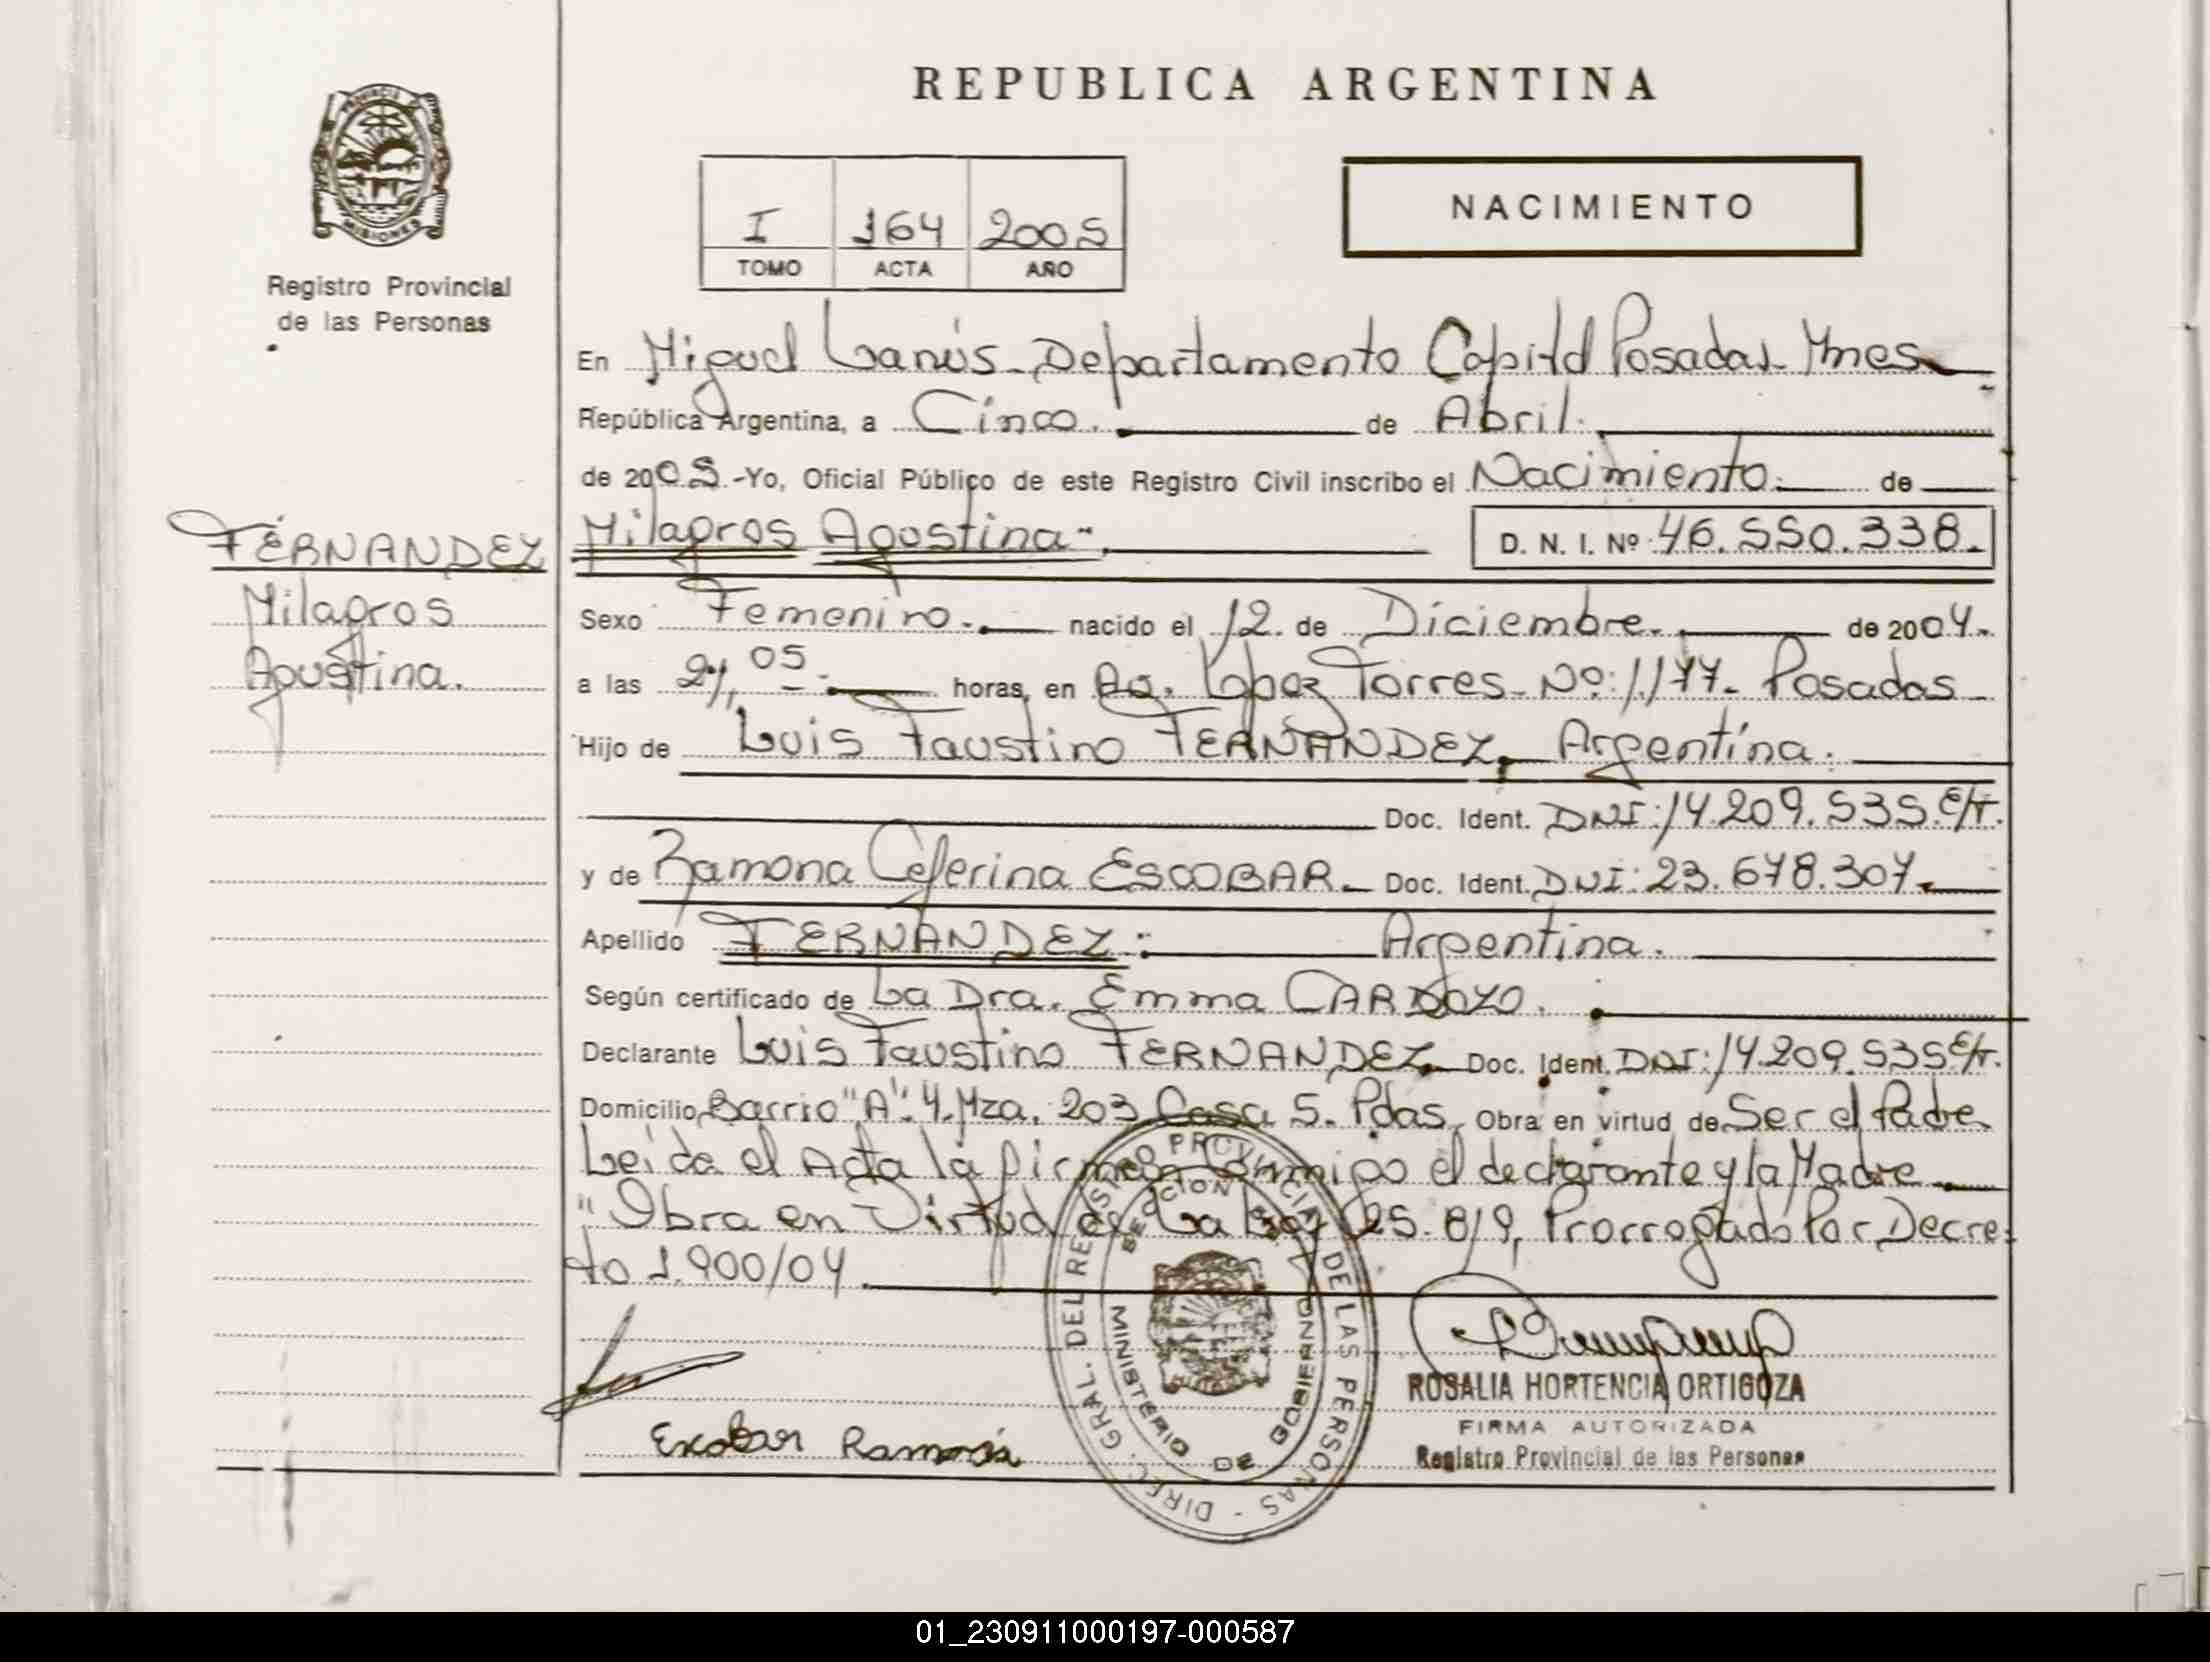 REPUBLICA ARGENTINA
PROVINCIA
MISIONES
Registro Provincial
de las Personas
I 164 2005
TOMO ACTA AÑO
NACIMIENTO
En Miguel Lanús - Departamento Capital Posadas - Mnes
República Argentina, a Cinco. de Abril.
de 2005.-Yo, Oficial Público de este Registro Civil inscribo el Nacimiento. de
FERNANDEZ
Milagros
Agustina.
Milagros Agustina.- D. N. I. Nº 46.550.338.
Sexo Femenino. nacido el 12. de Diciembre. de 2004.
a las 21,05 horas, en Av. López Torres - Nº: 1177 - Posadas
Hijo de Luis Faustino FERNANDEZ. Argentina.
Doc. Ident. DNI: 14.209.535 E/T.
y de Ramona Ceferina ESCOBAR. Doc. Ident. DNI: 23.678.307.
Apellido FERNANDEZ: Argentina.
Según certificado de La Dra. Emma CARDOZO.
Declarante Luis Faustino FERNANDEZ. Doc. Ident. DNI: 14.209.535 E/T.
Domicilio, Barrio "A". 4. Mza. 203 Casa 5. Pdas. Obra en virtud de Ser el Padre
Leída el Acta la firman conmigo el declarante y la Madre
"Obra en Virtud de La Ley 25.819, Prorrogado Por Decre-
to 1.900/04.
Escobar Ramona
DIREC. GRAL. DEL REGISTRO PROVINCIAL DE LAS PERSONAS -
MINISTERIO DE GOBIERNO
ROSALIA HORTENCIA ORTIGOZA
FIRMA AUTORIZADA
Registro Provincial de las Personas
01_230911000197-000587